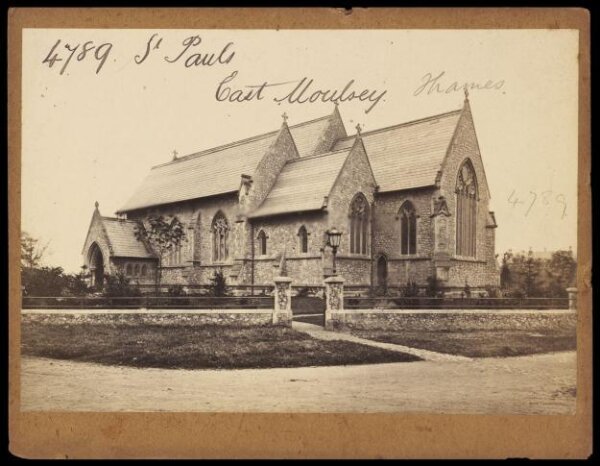 4789. St Pauls
East Moulsey.
Thames.
4789